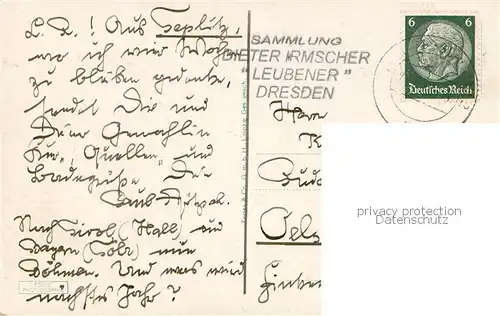 L. R.! Aus Teplitz,
wo ich vier Wochen
zu bleiben gedenke,
sendet Dir und
Deiner Gemahlin
Kur-, Quellen- und
Badegrüße Dein
Nach Tirol (Hall) und
Bayern (Tölz) nun
Böhmen. Und was wird
nächstes Jahr?
SAMMLUNG
DIETER IRMSCHER
"LEUBENER"
DRESDEN
6 6
Deutsches Reich
Herrn
Oels
privacy protection
Datenschutz